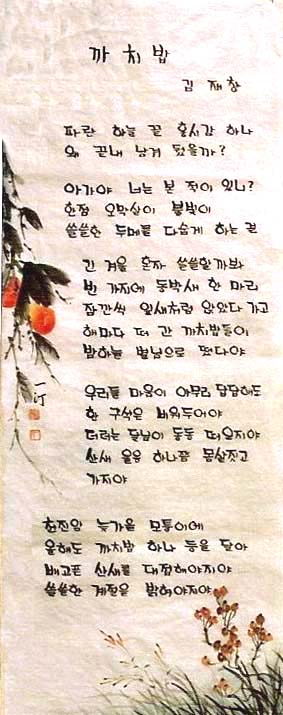 까치밥
김 재 창
파란 하늘 끝 홍시감 하나
왜 끝내 남겨 뒀을까?
아가야 너는 본 적이 있니?
한점 오막살이 불빛이
쓸쓸한 두메를 다숩게 하는 걸
긴 겨울 혼자 쓸쓸할까봐
빈 가지에 동박새 한 마리
잠깐씩 잎새처럼 앉았다 가고
해마다 떠 간 까치밥들이
밤하늘 별님으로 떴다야
우리들 마음이 아무리 답답해도
한 구석은 비워두어야
더러는 달님이 둥둥 떠오지야
산새 울음 하나쯤 몸살짓고
가지야
늦가을 모퉁이에
올해도 까치밥 하나 등을 달아
배고픈 산새를 대접해야지야
쓸쓸한 계절을 밝혀야지야